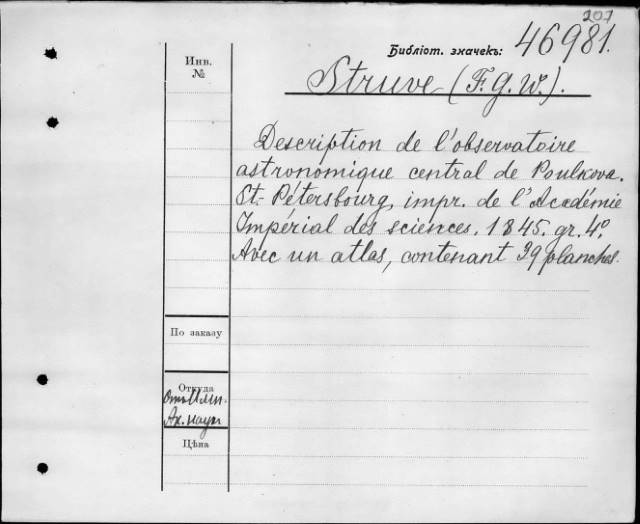 207
Библіот. значекъ: 46981.
Инв.
№
Struve (F. G. W.).
Description de l'observatoire
astronomique central de Poulkova.
St.-Pétersbourg, impr. de l'Académie
Impérial des sciences. 1845. gr. 4°.
Avec un atlas, contenant 39 planches.
По заказу
Откуда
Отъ Имп.
Ак. наукъ
Цѣна